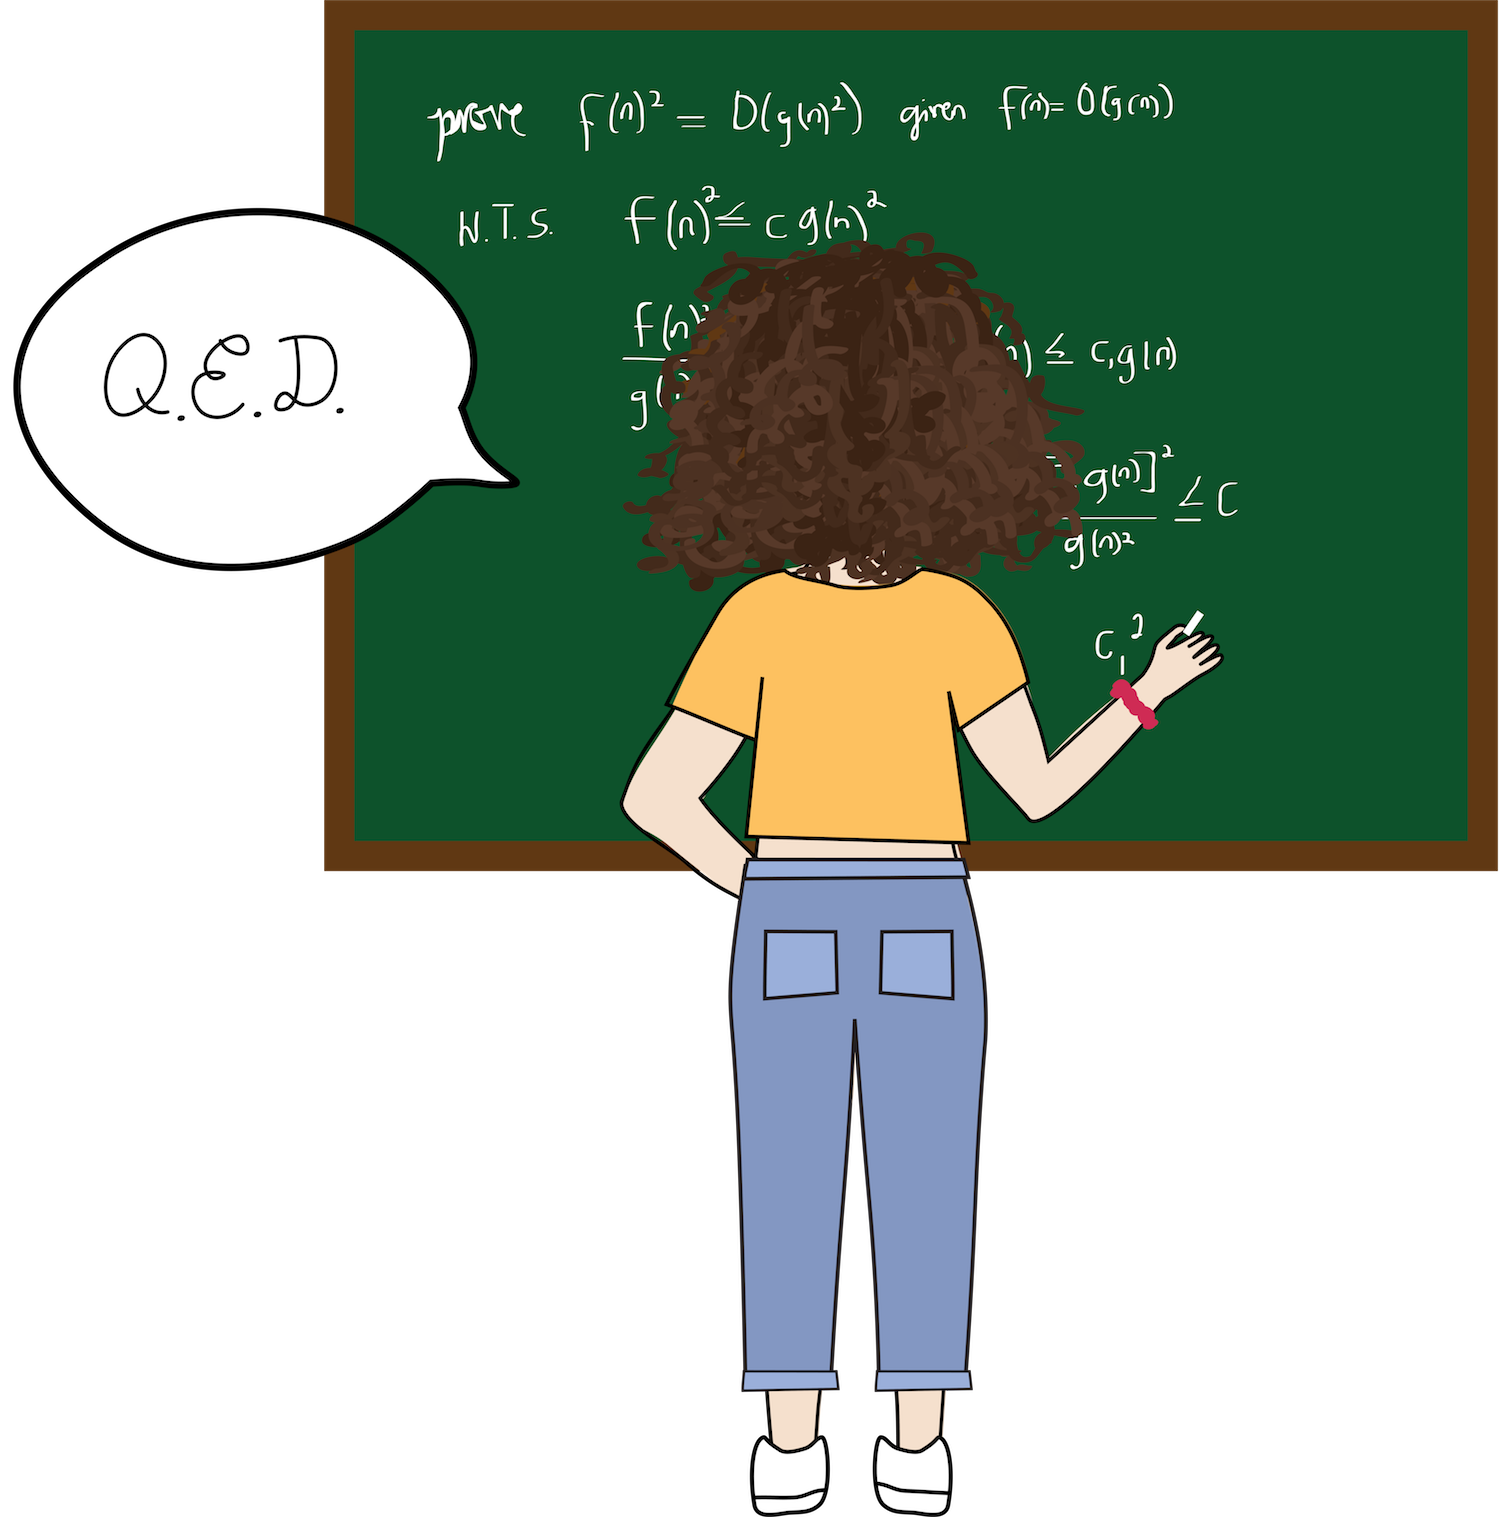 prove f(n)² = O(g(n)²) given f(n)= O(g(n))
N.T.S. f(n)² ≤ c g(n)²
Q.E.D.
f(n)²
g(n)
n) ≤ c₁g(n)
g(n)]² ≤ C
g(n)²
C₁²